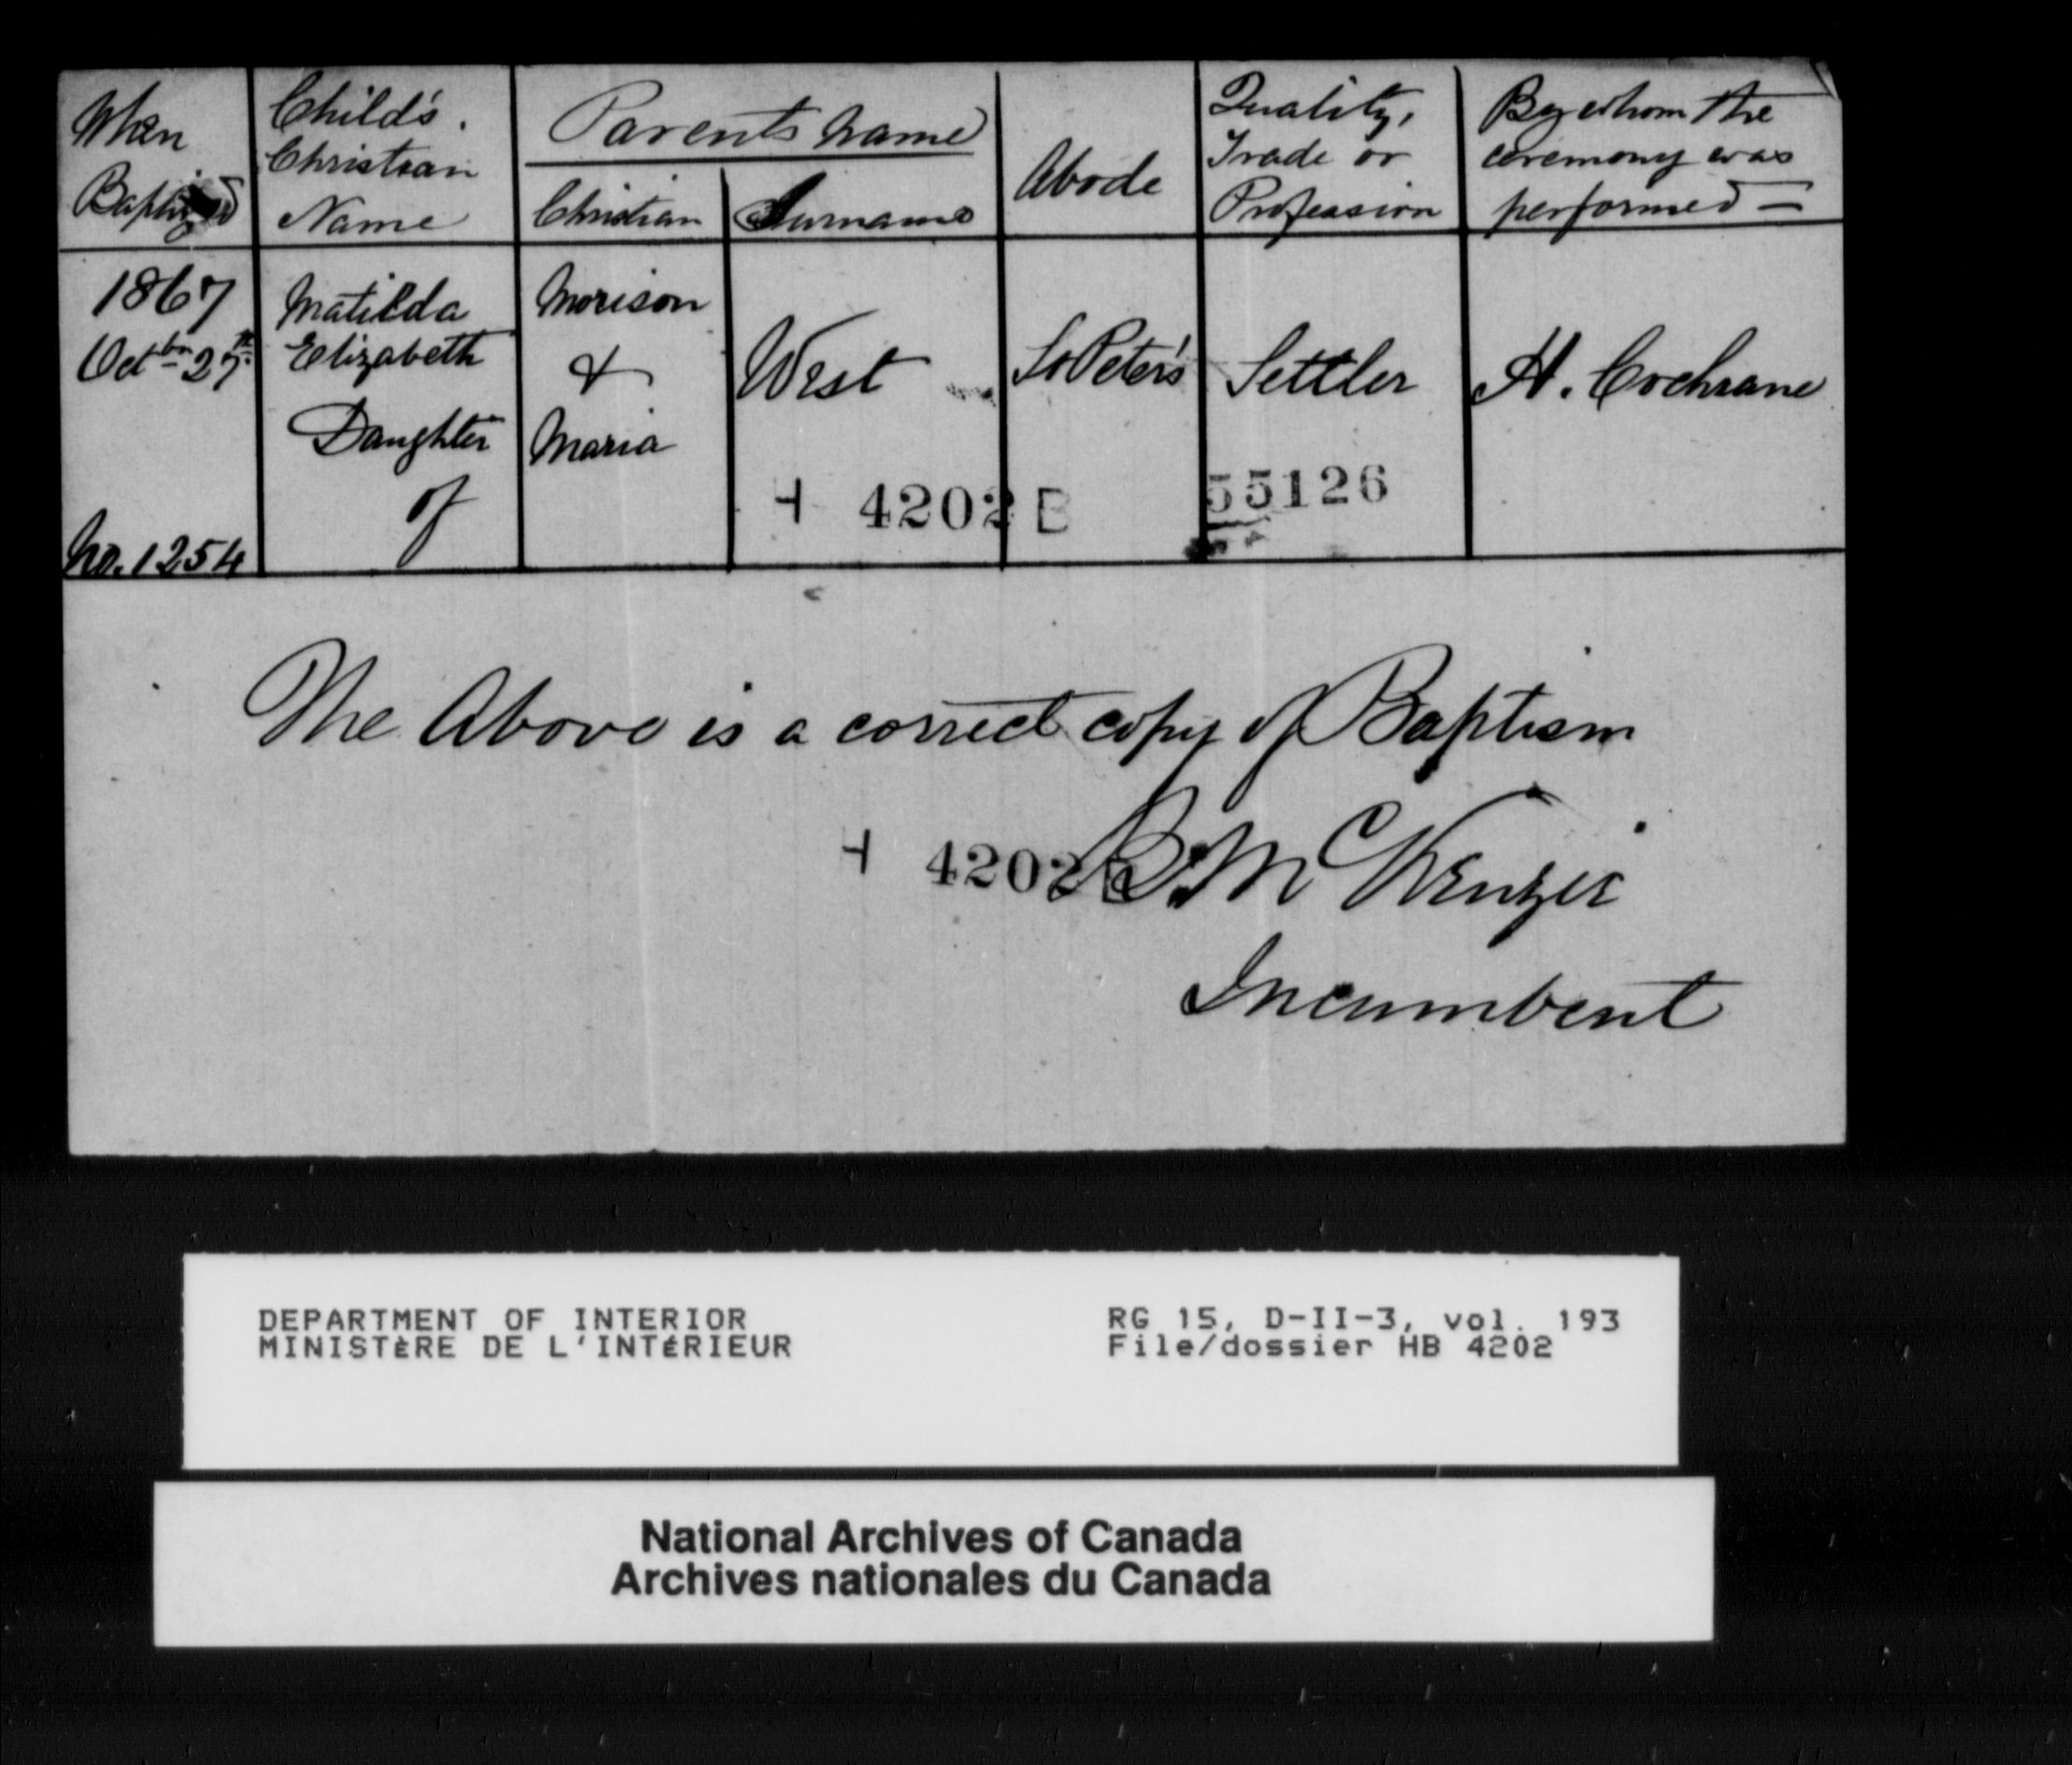 When Baptized
Child's. Christian Name
Parents name
Christian
Surname
Abode
Quality, Trade or Profession
By whom the ceremony was performed -
1867
Octbr 27th
No. 1254
Matilda
Elizabeth
Daughter
of
Morison
&
Maria
West
St Peter's
Settler
H. Cochrane
H 4202 B
55126
The Above is a correct copy of Baptism
H 4202
B. McKenzie
Incumbent
DEPARTMENT OF INTERIOR
MINISTÈRE DE L'INTÉRIEUR
RG 15, D-II-3, vol. 193
File/dossier HB 4202
National Archives of Canada
Archives nationales du Canada